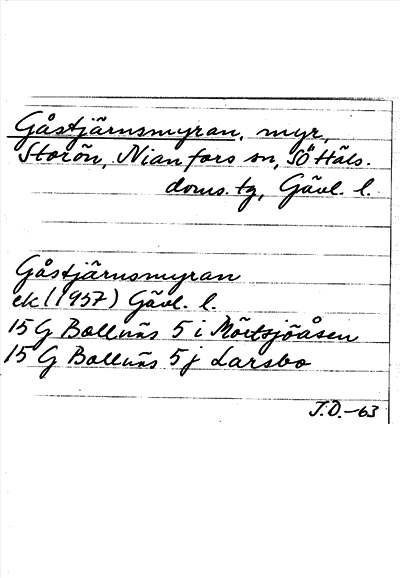 Gåstjärnsmyran, myr,
Storön, Nianfors sn, SÖ Häls.
doms. tg, Gävl. l.
Gåstjärnsmyran
ek (1957) Gävl. l.
15 G Bollnäs 5 i Mörtsjöåsen
15 G Bollnäs 5 j Larsbo
J.O.-63